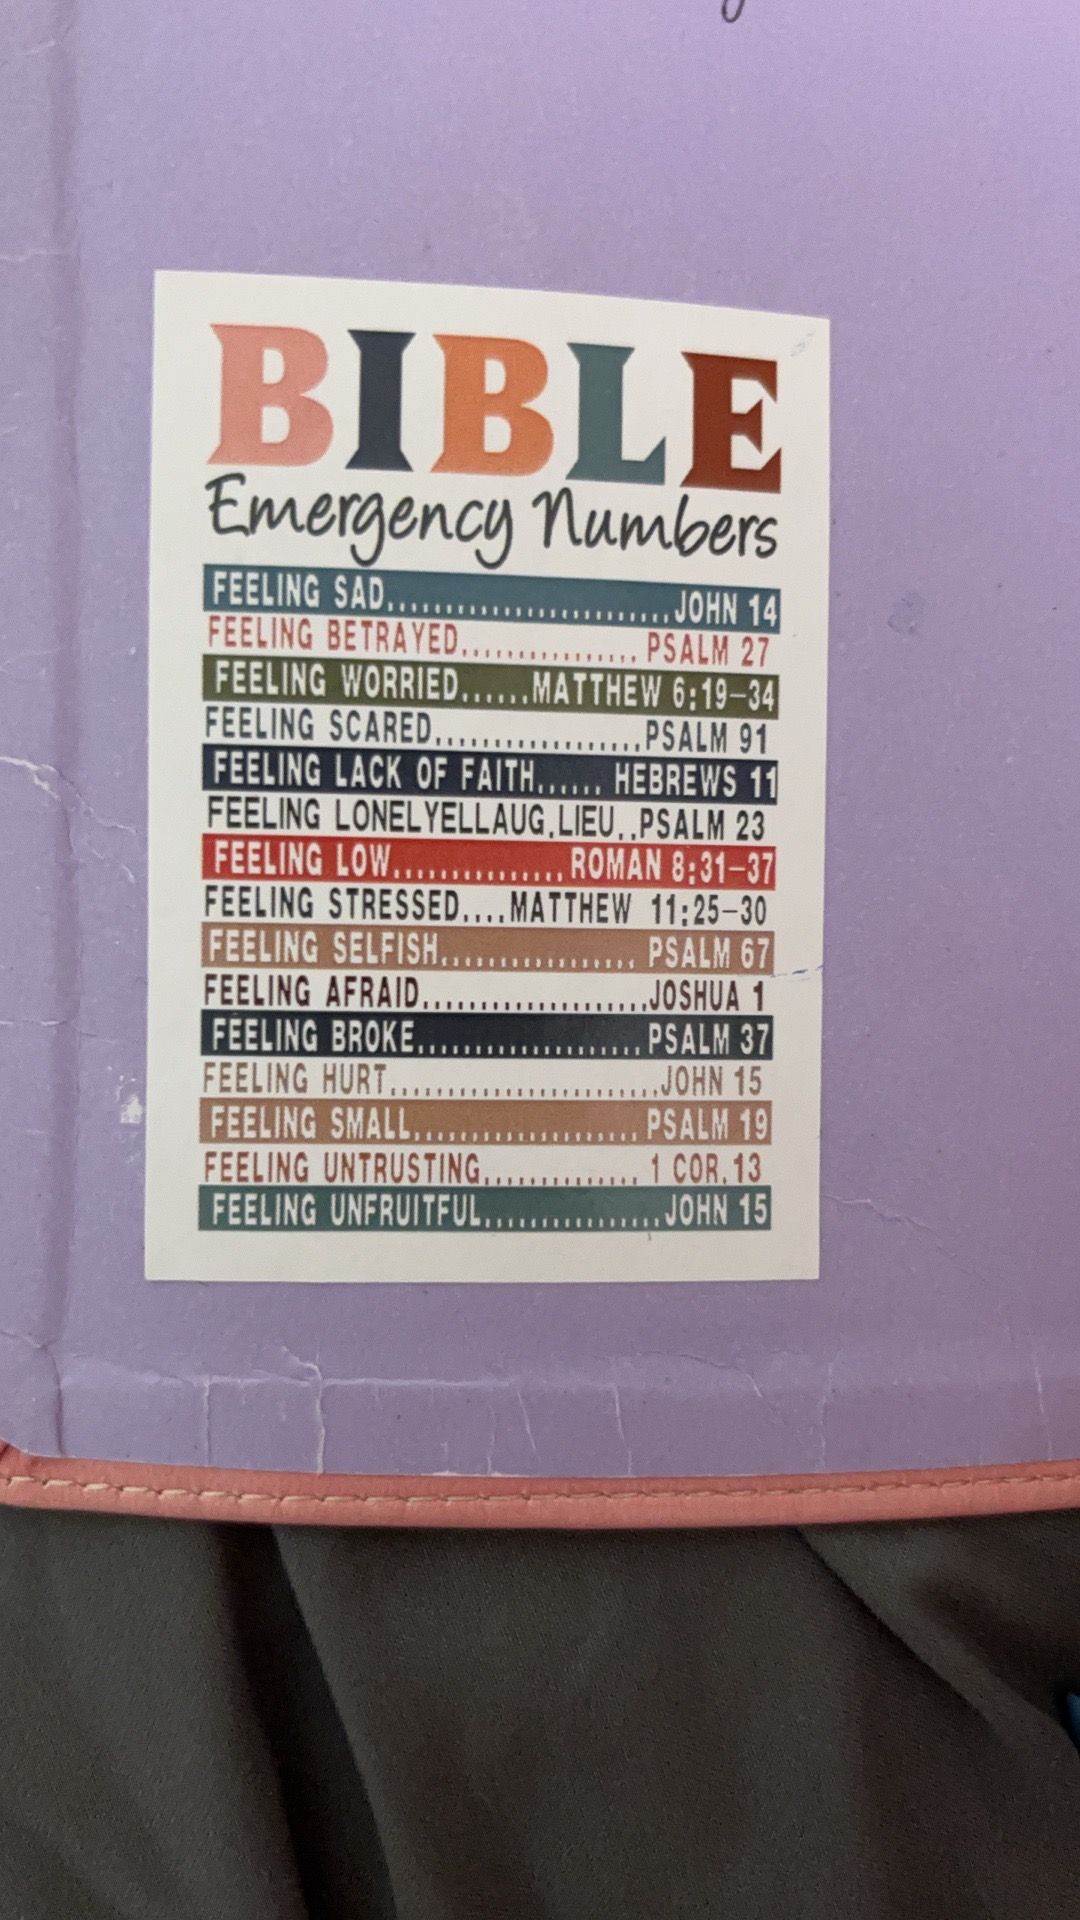 BIBLE
Emergency Numbers
FEELING SAD.............................JOHN 14
FEELING BETRAYED................ PSALM 27
FEELING WORRIED......MATTHEW 6:19-34
FEELING SCARED...................PSALM 91
FEELING LACK OF FAITH...... HEBREWS 11
FEELING LONELYELLAUG.LIEU..PSALM 23
FEELING LOW................ROMAN 8:31-37
FEELING STRESSED....MATTHEW 11:25-30
FEELING SELFISH.................. PSALM 67
FEELING AFRAID.....................JOSHUA 1
FEELING BROKE.....................PSALM 37
FEELING HURT.........................JOHN 15
FEELING SMALL..................... PSALM 19
FEELING UNTRUSTING.............. 1 COR.13
FEELING UNFRUITFUL................JOHN 15